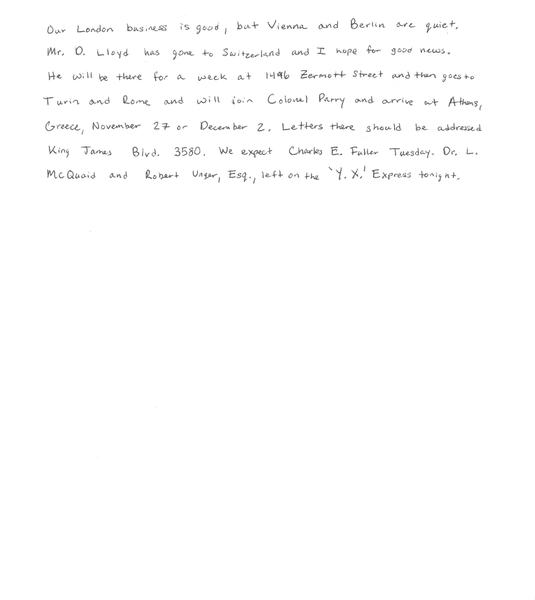 Our London business is good, but Vienna and Berlin are quiet.
Mr. D. Lloyd has gone to Switzerland and I hope for good news.
He will be there for a week at 1496 Zermott Street and then goes to
Turin and Rome and will join Colonel Parry and arrive at Athens,
Greece, November 27 or December 2. Letters there should be addressed
King James Blvd. 3580. We expect Charles E. Fuller Tuesday. Dr. L.
McQuaid and Robert Unger, Esq., left on the 'Y. X.' Express tonight.